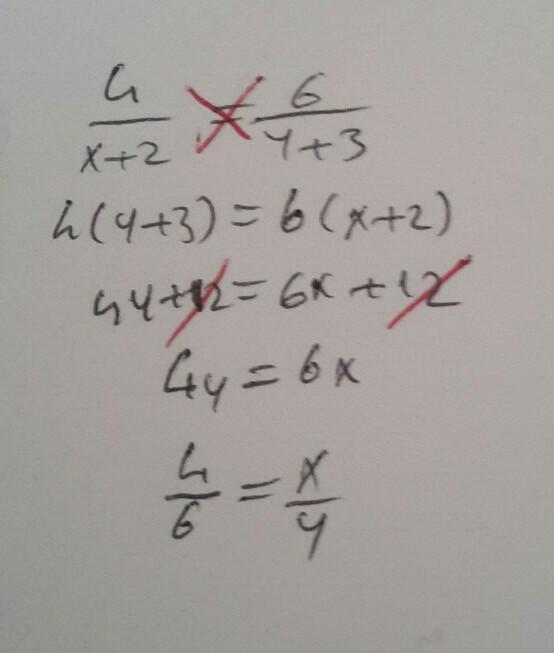 4/(x+2) = 6/(y+3)
4(y+3) = 6(x+2)
4y+12 = 6x+12
4y = 6x
4/6 = x/y